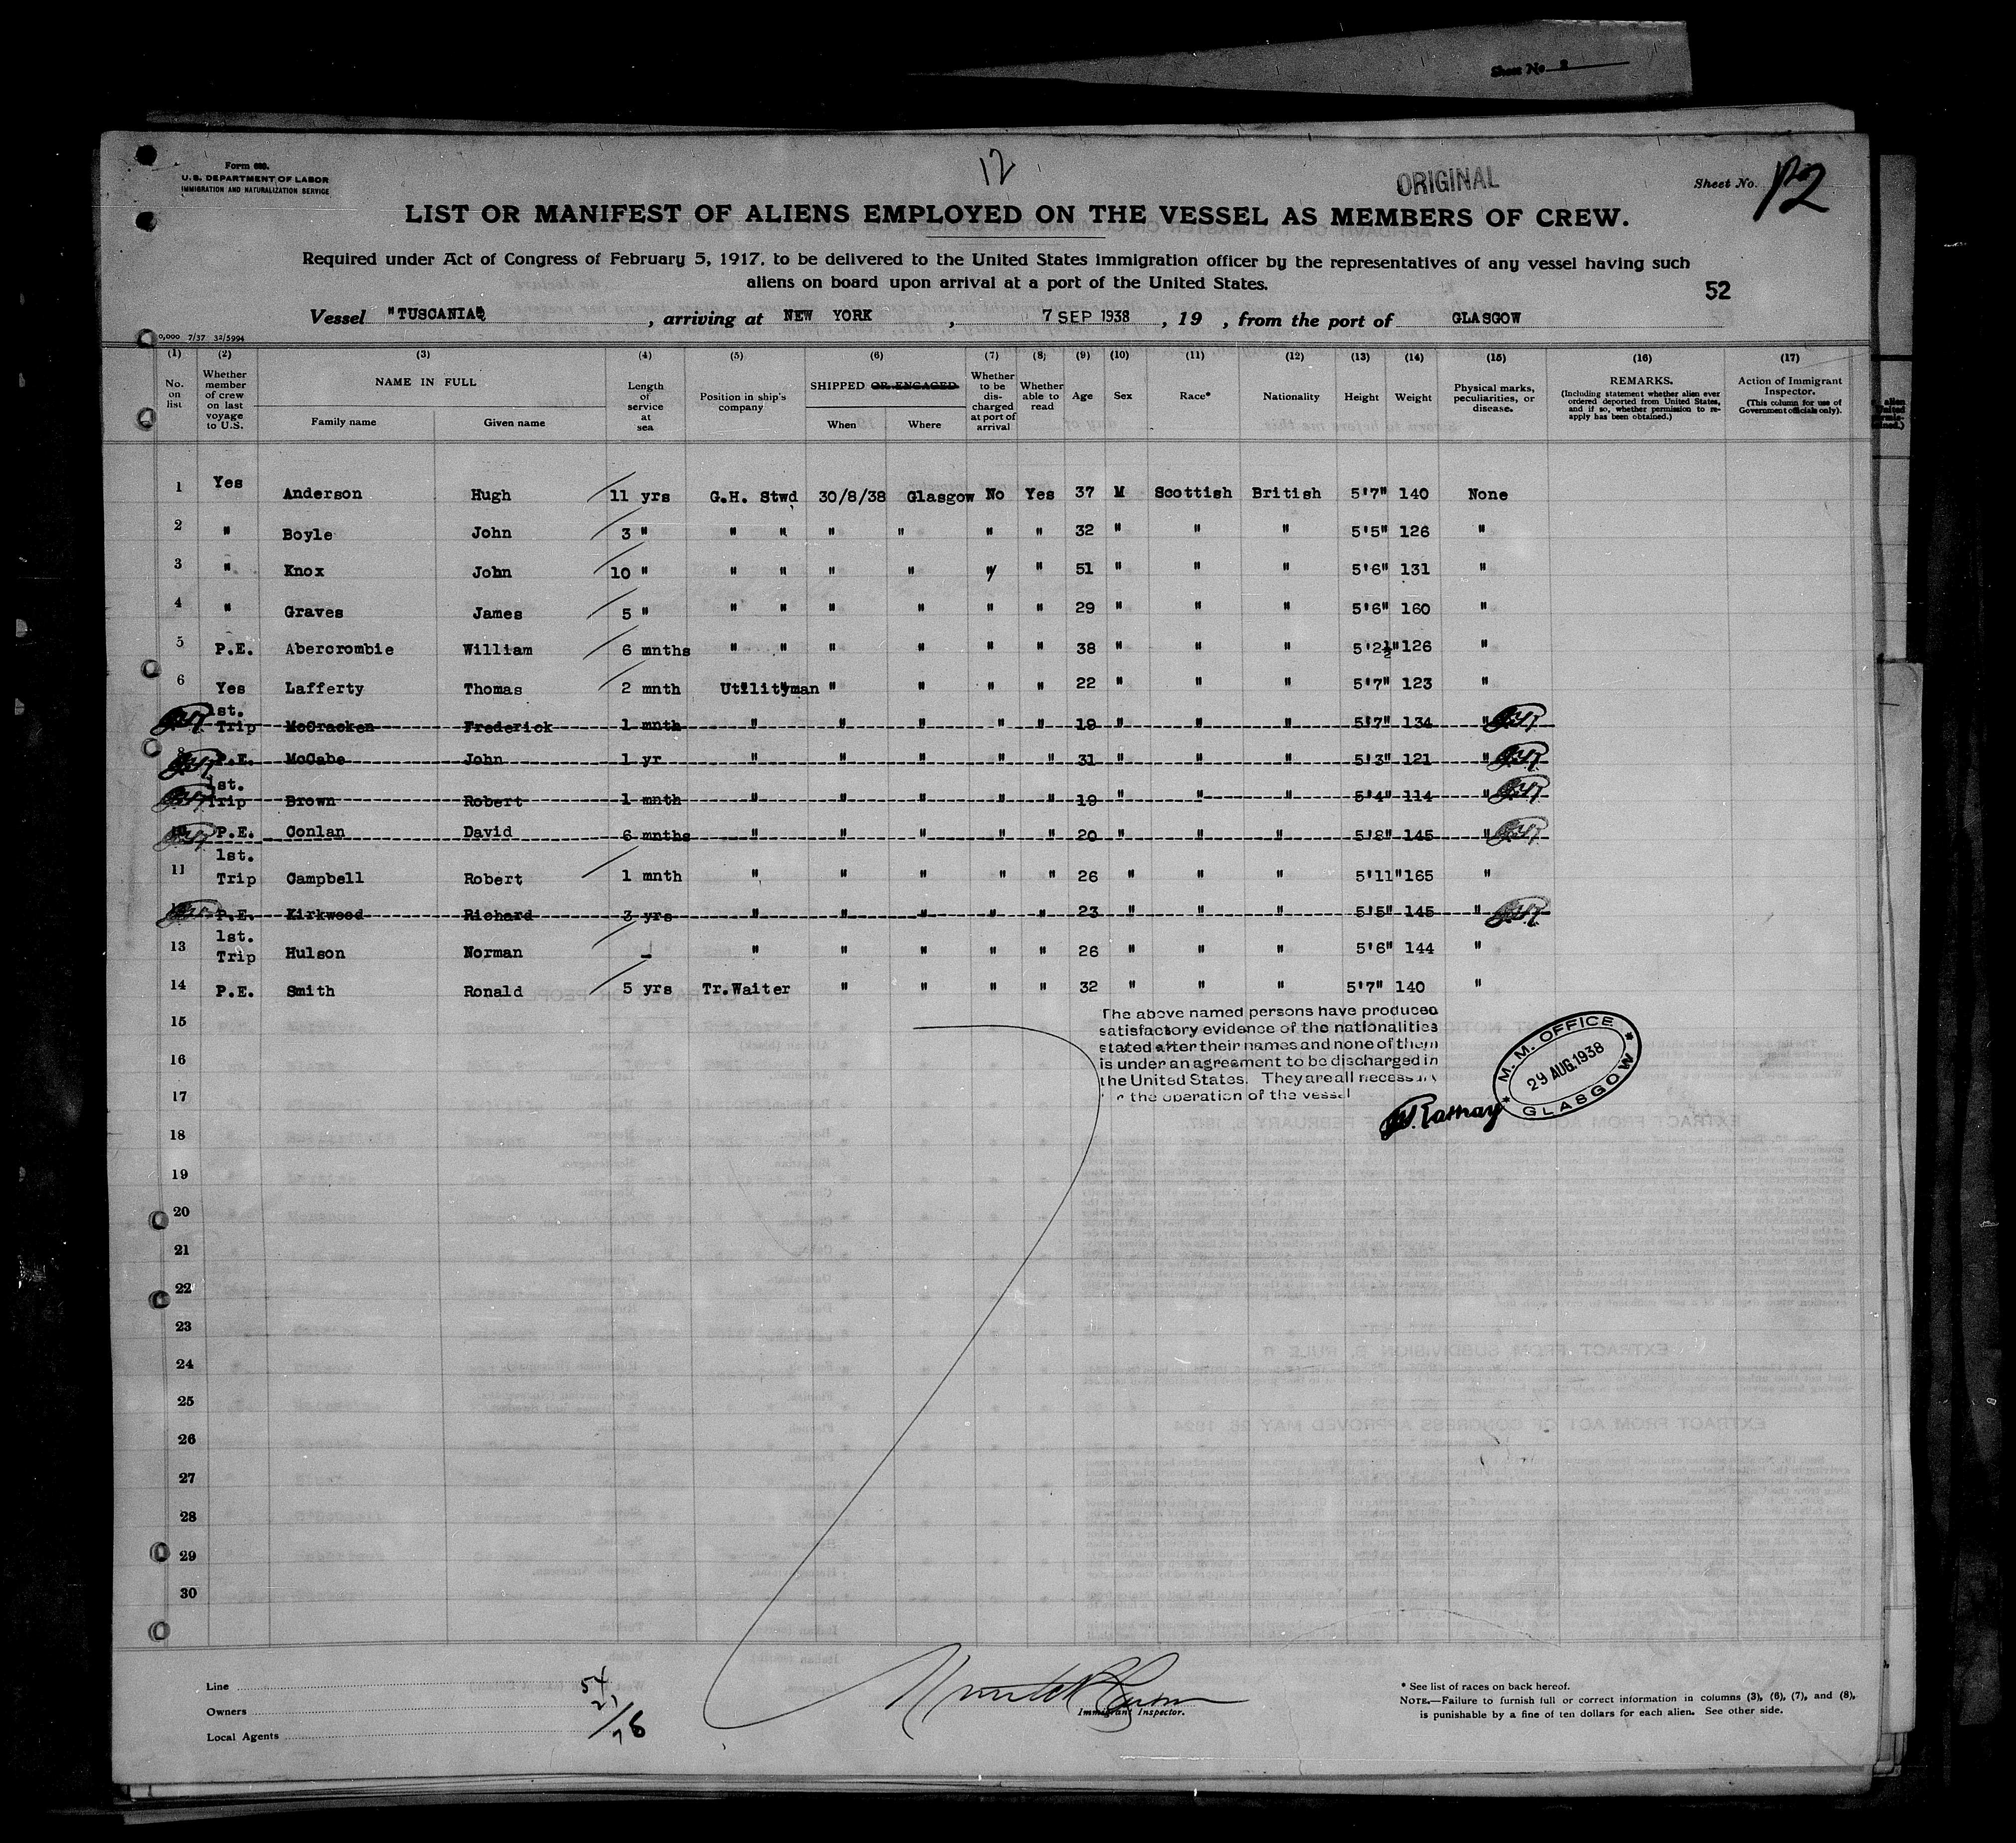 Sheet No. 2
Form 689.
U.S. DEPARTMENT OF LABOR
IMMIGRATION AND NATURALIZATION SERVICE
12
ORIGINAL
Sheet No. 12
LIST OR MANIFEST OF ALIENS EMPLOYED ON THE VESSEL AS MEMBERS OF CREW.
Required under Act of Congress of February 5, 1917, to be delivered to the United States immigration officer by the representatives of any vessel having such
aliens on board upon arrival at a port of the United States.
52
Vessel "TUSCANIA", arriving at NEW YORK, 7 SEP 1938, 19 , from the port of GLASGOW
0,000 7/37 32/5994
(1) (2) (3) (4) (5) (6) (7) (8) (9) (10) (11) (12) (13) (14) (15) (16) (17)
No. on list
Whether member of crew on last voyage to U.S.
NAME IN FULL
Family name Given name
Length of service at sea
Position in ship's company
SHIPPED OR ENGAGED
When Where
Whether to be discharged at port of arrival
Whether able to read
Age
Sex
Race*
Nationality
Height
Weight
Physical marks, peculiarities, or disease.
REMARKS.
(Including statement whether alien ever ordered deported from United States, and if so, whether permission to reapply has been obtained.)
Action of Immigrant Inspector.
(This column for use of Government officials only).
1 Yes Anderson Hugh 11 yrs G.H. Stwd 30/8/38 Glasgow No Yes 37 M Scottish British 5'7" 140 None
2 " Boyle John 3 " " " " " " " 32 " " " 5'5" 126 "
3 " Knox John 10 " " " " " " " 51 " " " 5'6" 131 "
4 " Graves James 5 " " " " " " " 29 " " " 5'6" 160 "
5 P.E. Abercrombie William 6 mnths " " " " " " 38 " " " 5'2½" 126 "
6 Yes Lafferty Thomas 2 mnth Utilityman " " " " 22 " " " 5'7" 123 "
1st. Trip McCracken Frederick 1 mnth " " " " " 19 " " " 5'7" 134 "
8 P.E. McCabe John 1 yr " " " " " 31 " " " 5'3" 121 "
1st. Trip Brown Robert 1 mnth " " " " " 19 " " " 5'4" 114 "
10 P.E. Conlan David 6 mnths " " " " " 20 " " " 5'8" 145 "
11 1st. Trip Campbell Robert 1 mnth " " " " " 26 " " " 5'11" 165 "
P.E. Kirkwood Richard 3 yrs " " " " " 23 " " " 5'5" 145 "
13 1st. Trip Hulson Norman - " " " " " 26 " " " 5'6" 144 "
14 P.E. Smith Ronald 5 yrs Tr.Waiter " " " " 32 " " " 5'7" 140 "
15
16
17
18
19
20
21
22
23
24
25
26
27
28
29
30
The above named persons have produced
satisfactory evidence of the nationalities
stated after their names and none of them
is under an agreement to be discharged in
the United States. They are all necessary
the operation of the vessel
M. M. OFFICE
29 AUG. 1938
GLASGOW
Line
Owners
Local Agents
54
21
78
Immigrant Inspector.
* See list of races on back hereof.
NOTE.—Failure to furnish full or correct information in columns (3), (6), (7), and (8),
is punishable by a fine of ten dollars for each alien. See other side.